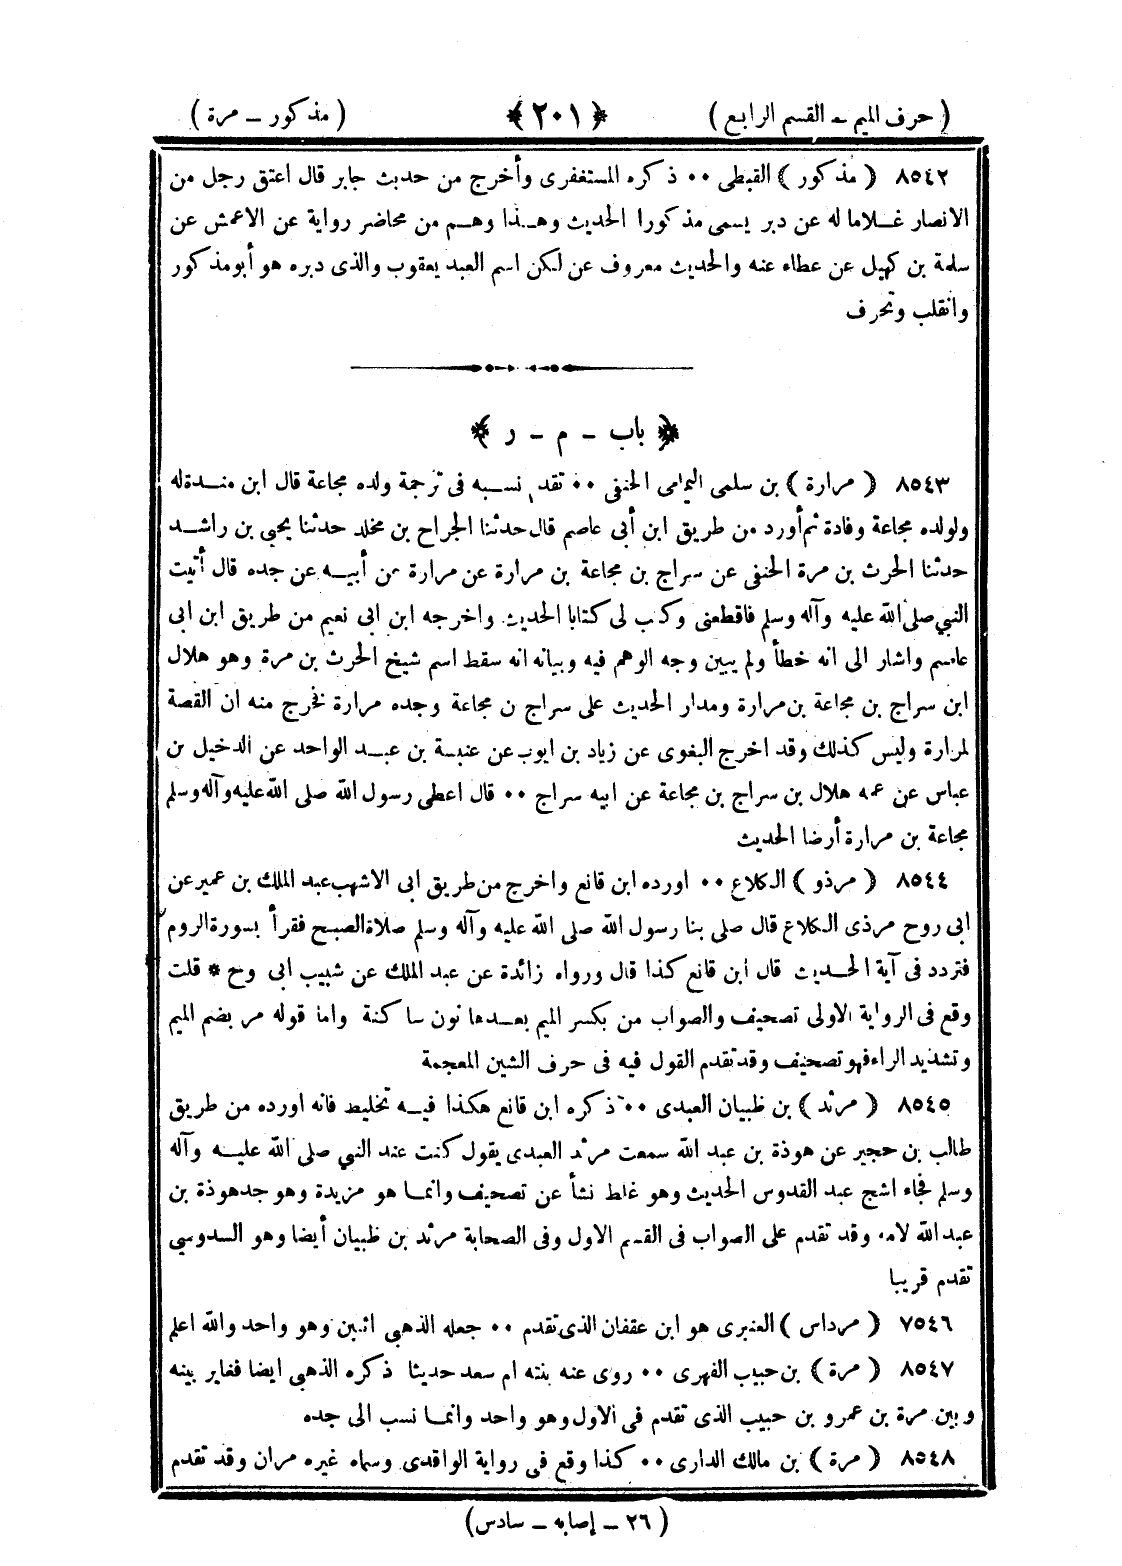 ( حرف الميم - القسم الرابع ) ﴿ ٢٠١ ﴾ ( مذكور - مرة )
٨٥٤٢ ( مذكور ) القبطى ٠٠ ذكره المستغفرى وأخرج من حديث جابر قال اعتق رجل من
الانصار غلاما له عن دبر يسمى مذكورا الحديث وهذا وهم من محاضر رواية عن الاعمش عن
سلمة بن كهيل عن عطاء عنه والحديث معروف عن لكن اسم العبد يعقوب والذى دبره هو أبومذكور
وانقلب وتحرف
﴿ باب - م - ر ﴾
٨٥٤٣ ( مرارة ) بن سلمى اليمامى الحنفى ٠٠ تقدم نسبه فى ترجمة ولده مجاعة قال ابن مندة له
ولولده مجاعة وفادة ثم أورد من طريق ابن أبى عاصم قال حدثنا الجراح بن مخلد حدثنا يحيى بن راشد
حدثنا الحرث بن مرة الحنفى عن سراج بن مجاعة بن مرارة عن مرارة عن أبيه عن جده قال أتيت
النبي صلى الله عليه وآله وسلم فاقطعنى وكتب لى كتابا الحديث واخرجه ابن ابى نعيم من طريق ابن ابى
عاصم واشار الى انه خطأ ولم يبين وجه الوهم فيه وبيانه انه سقط اسم شيخ الحرث بن مرة وهو هلال
ابن سراج بن مجاعة بن مرارة ومدار الحديث على سراج ن مجاعة وجده مرارة فخرج منه ان القصة
لمرارة وليس كذلك وقد اخرج البغوى عن زياد بن ايوب عن عنبسة بن عبد الواحد عن الدخيل بن
عباس عن عمه هلال بن سراج بن مجاعة عن ابيه سراج ٠٠ قال اعطى رسول الله صلى الله عليه وآله وسلم
مجاعة بن مرارة أرضا الحديث
٨٥٤٤ ( مرذو ) الكلاع ٠٠ اورده ابن قانع واخرج من طريق ابى الاشهب عبد الملك بن عمير عن
ابى روح مرذى الكلاع قال صلى بنا رسول الله صلى الله عليه وآله وسلم صلاة الصبح فقرأ بسورة الروم
فتردد فى آية الحديث قال ابن قانع كذا قال ورواه زائدة عن عبد الملك عن شبيب ابى وح * قلت
وقع فى الرواية الاولى تصحيف والصواب من بكسر الميم بعدها نون ساكنة واما قوله مر بضم الميم
وتشديد الراء فهو تصحيف وقد تقدم القول فيه فى حرف الشين المعجمة
٨٥٤٥ ( مرثد ) بن ظبيان العبدى ٠٠ ذكره ابن قانع هكذا فيه تخليط فانه اورده من طريق
طالب بن حجير عن هوذة بن عبد الله سمعت مرثد العبدى يقول كنت عند النبي صلى الله عليه وآله
وسلم فجاء اشج عبد القدوس الحديث وهو غلط نشأ عن تصحيف وانما هو مزيدة وهو جد هوذة بن
عبد الله لامه وقد تقدم على الصواب فى القسم الاول وفى الصحابة مرثد بن ظبيان أيضا وهو السدوسي
تقدم قريبا
٧٥٤٦ ( مرداس ) العنبرى هو ابن عقفان الذى تقدم ٠٠ جعله الذهبى اثنين وهو واحد والله اعلم
٨٥٤٧ ( مرة ) بن حبيب الفهرى ٠٠ روى عنه بنته ام سعد حديثا ذكره الذهبى ايضا فغاير بينه
وبين مرة بن عمرو بن حبيب الذى تقدم فى الاول وهو واحد وانما نسب الى جده
٨٥٤٨ ( مرة ) بن مالك الدارى ٠٠ كذا وقع فى رواية الواقدى وسماه غيره مران وقد تقدم
( ٢٦ - إصابه - سادس )